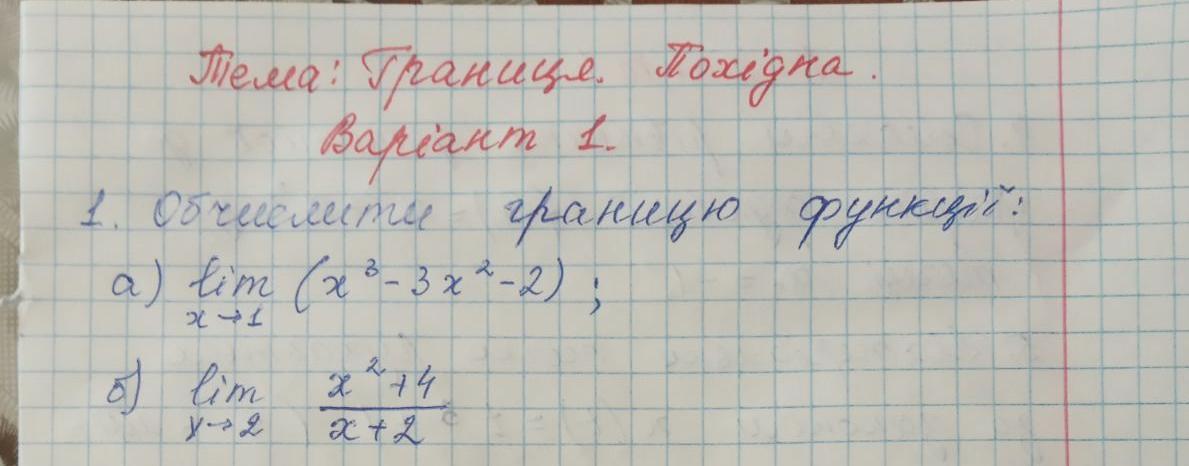 Тема: Границя. Похідна.
Варіант 1.
1. Обчислити границю функції:
а) lim (x³-3x²-2);
x→1
б) lim x²+4
x→2 x+2